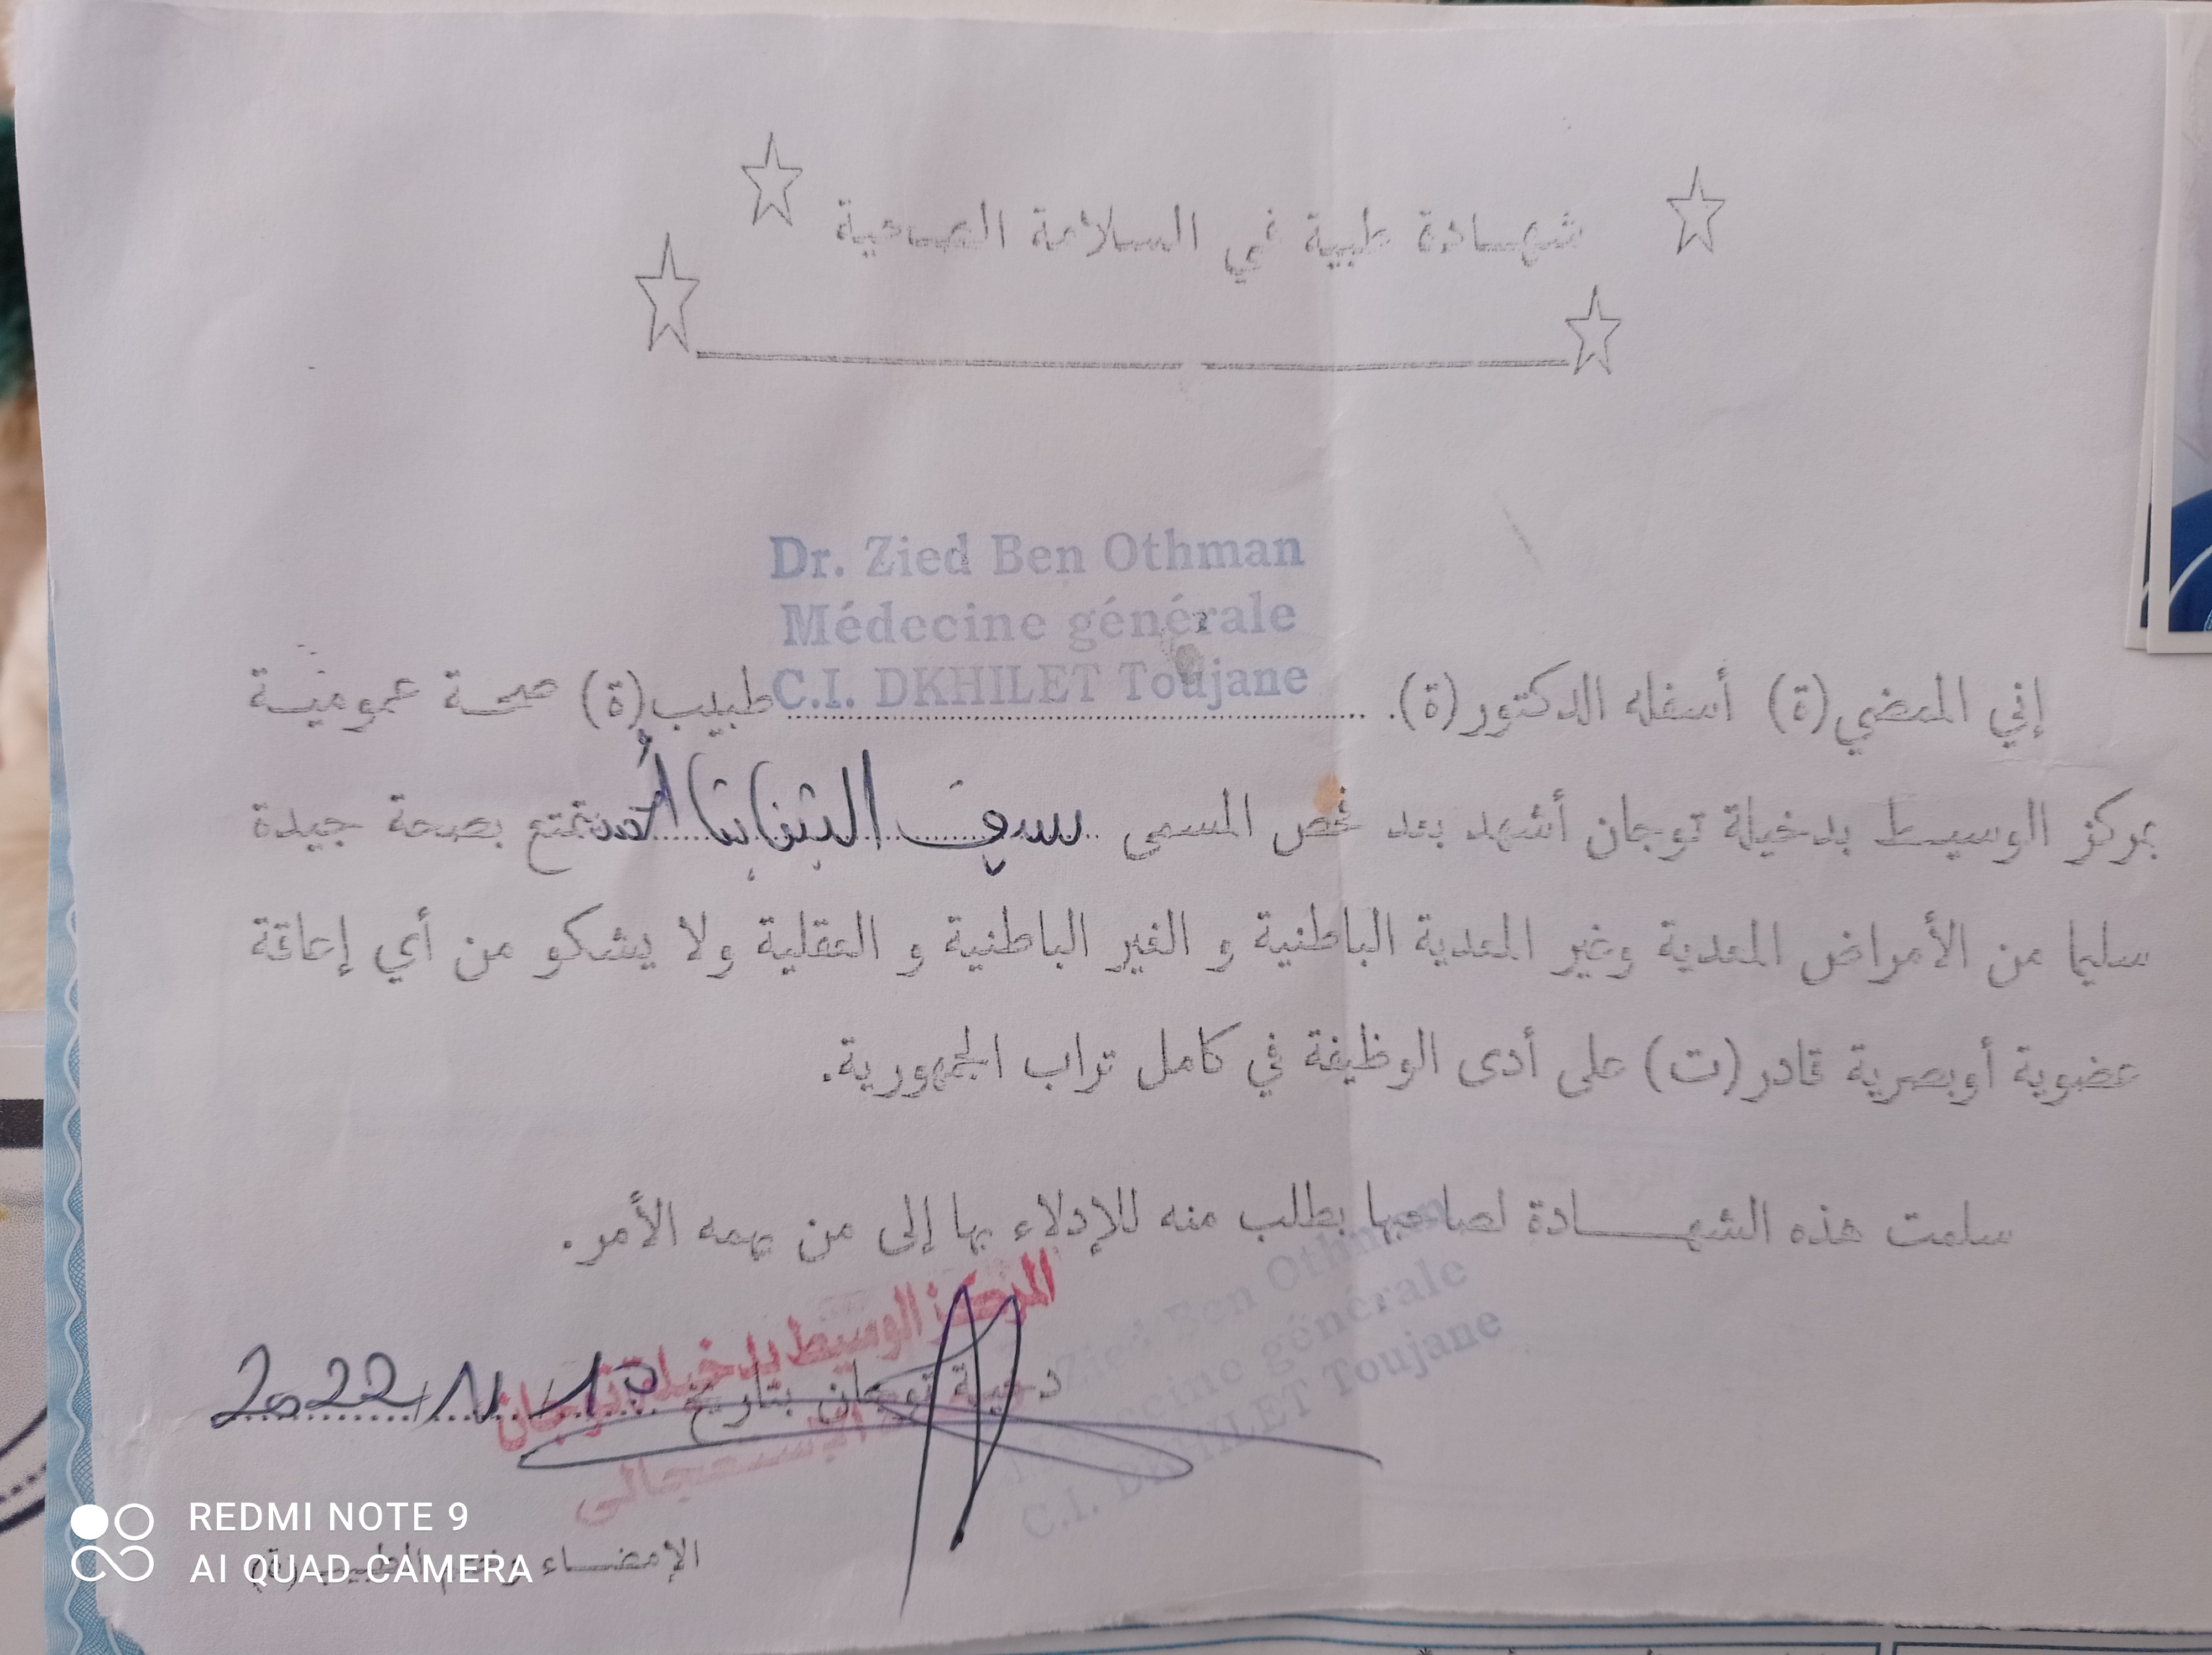 شهادة طبية في السلامة الصحية
Dr. Zied Ben Othman
Médecine générale
C.I. DKHILET Toujane
إني الممضي (ة) أسفله الدكتور(ة). طبيب(ة) صحة عمومية
بمركز الوسيط بدخيلة توجان أشهد بعد فحص المسمى سيف يتمتع بصحة جيدة
سليما من الأمراض المعدية وغير المعدية الباطنية و الغير الباطنية و العقلية ولا يشكو من أي إعاقة
عضوية أوبصرية قادر(ت) على أدى الوظيفة في كامل تراب الجمهورية.
سلمت هذه الشهادة لصاحبها بطلب منه للإدلاء بها إلى من يهمه الأمر.
المركز الوسيط بدخيلة توجان
دخيلة توجان بتاريخ 2022/11/10
الإستعجالي
Zied Ben Othman
Médecine générale
C.I. DKHILET Toujane
الإمضاء وختم الطبيب(ة)
REDMI NOTE 9
AI QUAD CAMERA